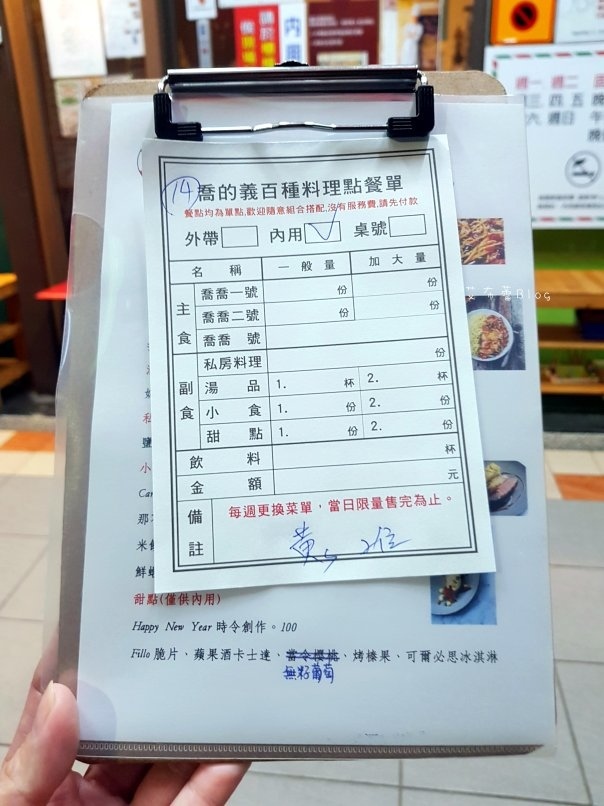 內用
週一 週二
三 四 五 晚
六 週日 午
晚
14 喬的義百種料理點餐單
餐點均為單點,歡迎隨意組合搭配,沒有服務費,請先付款
外帶 內用 ✓ 桌號
名 稱 一 般 量 加 大 量
主食
喬喬一號 份 份
喬喬二號 份 份
喬喬 號
副食
私房料理 份
湯 品 1. 杯 2. 杯
小 食 1. 份 2. 份
甜 點 1. 份 2. 份
飲 料 杯
金 額 元
備註
每週更換菜單，當日限量售完為止。
黃 2位
艾布蕾Blog
私
鹽
小
Car
那
米
鮮
甜點(僅供內用)
Happy New Year 時令創作。100
Fillo 脆片、蘋果酒卡士達、當令櫻桃、烤榛果、可爾必思冰淇淋
無籽葡萄